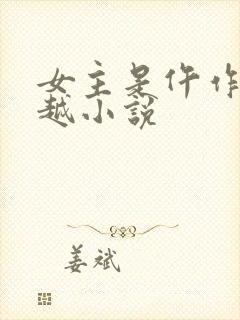 女主是仵作
越小说
姜斌